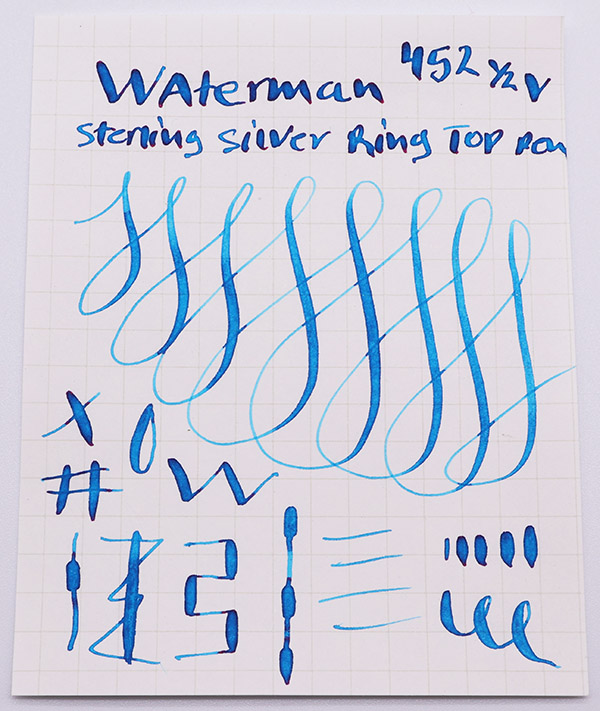 Waterman 452 1/2 V
Sterling Silver Ring Top Pen
X O
# W